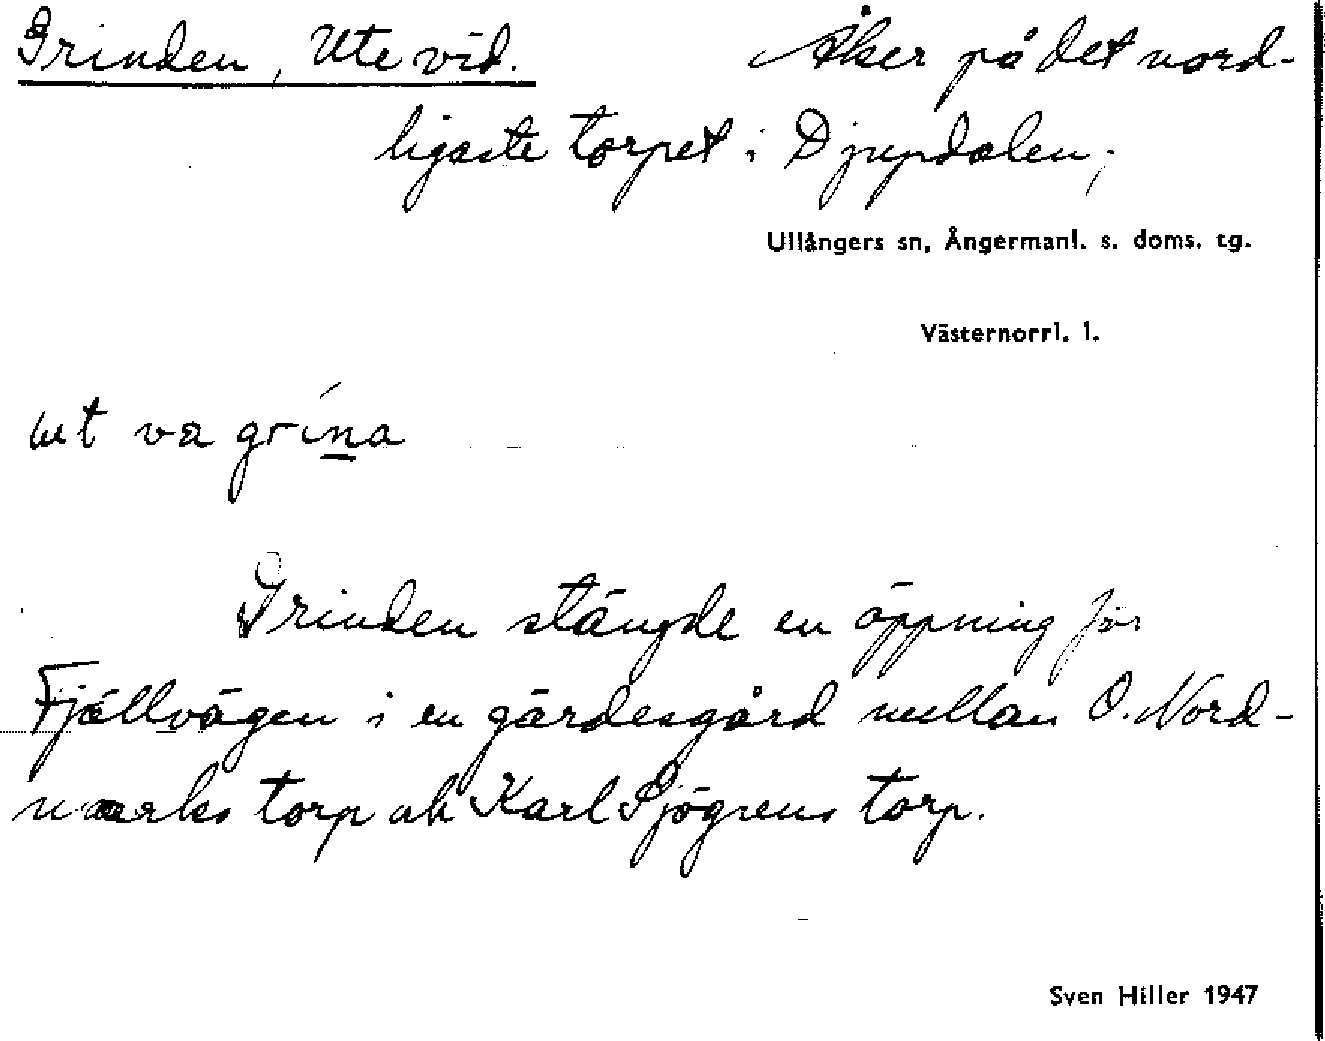 Grinden, Ute vid. Åker på det nord-
ligaste torpet i Djupdalen,
Ullångers sn, Ångermanl. s. doms. tg.
Västernorrl. l.
ut va grina
Grinden stängde en öppning för
Fjällvägen i en gärdesgård mellan O. Nord-
marks torp och Karl Sjögrens torp.
Sven Hiller 1947